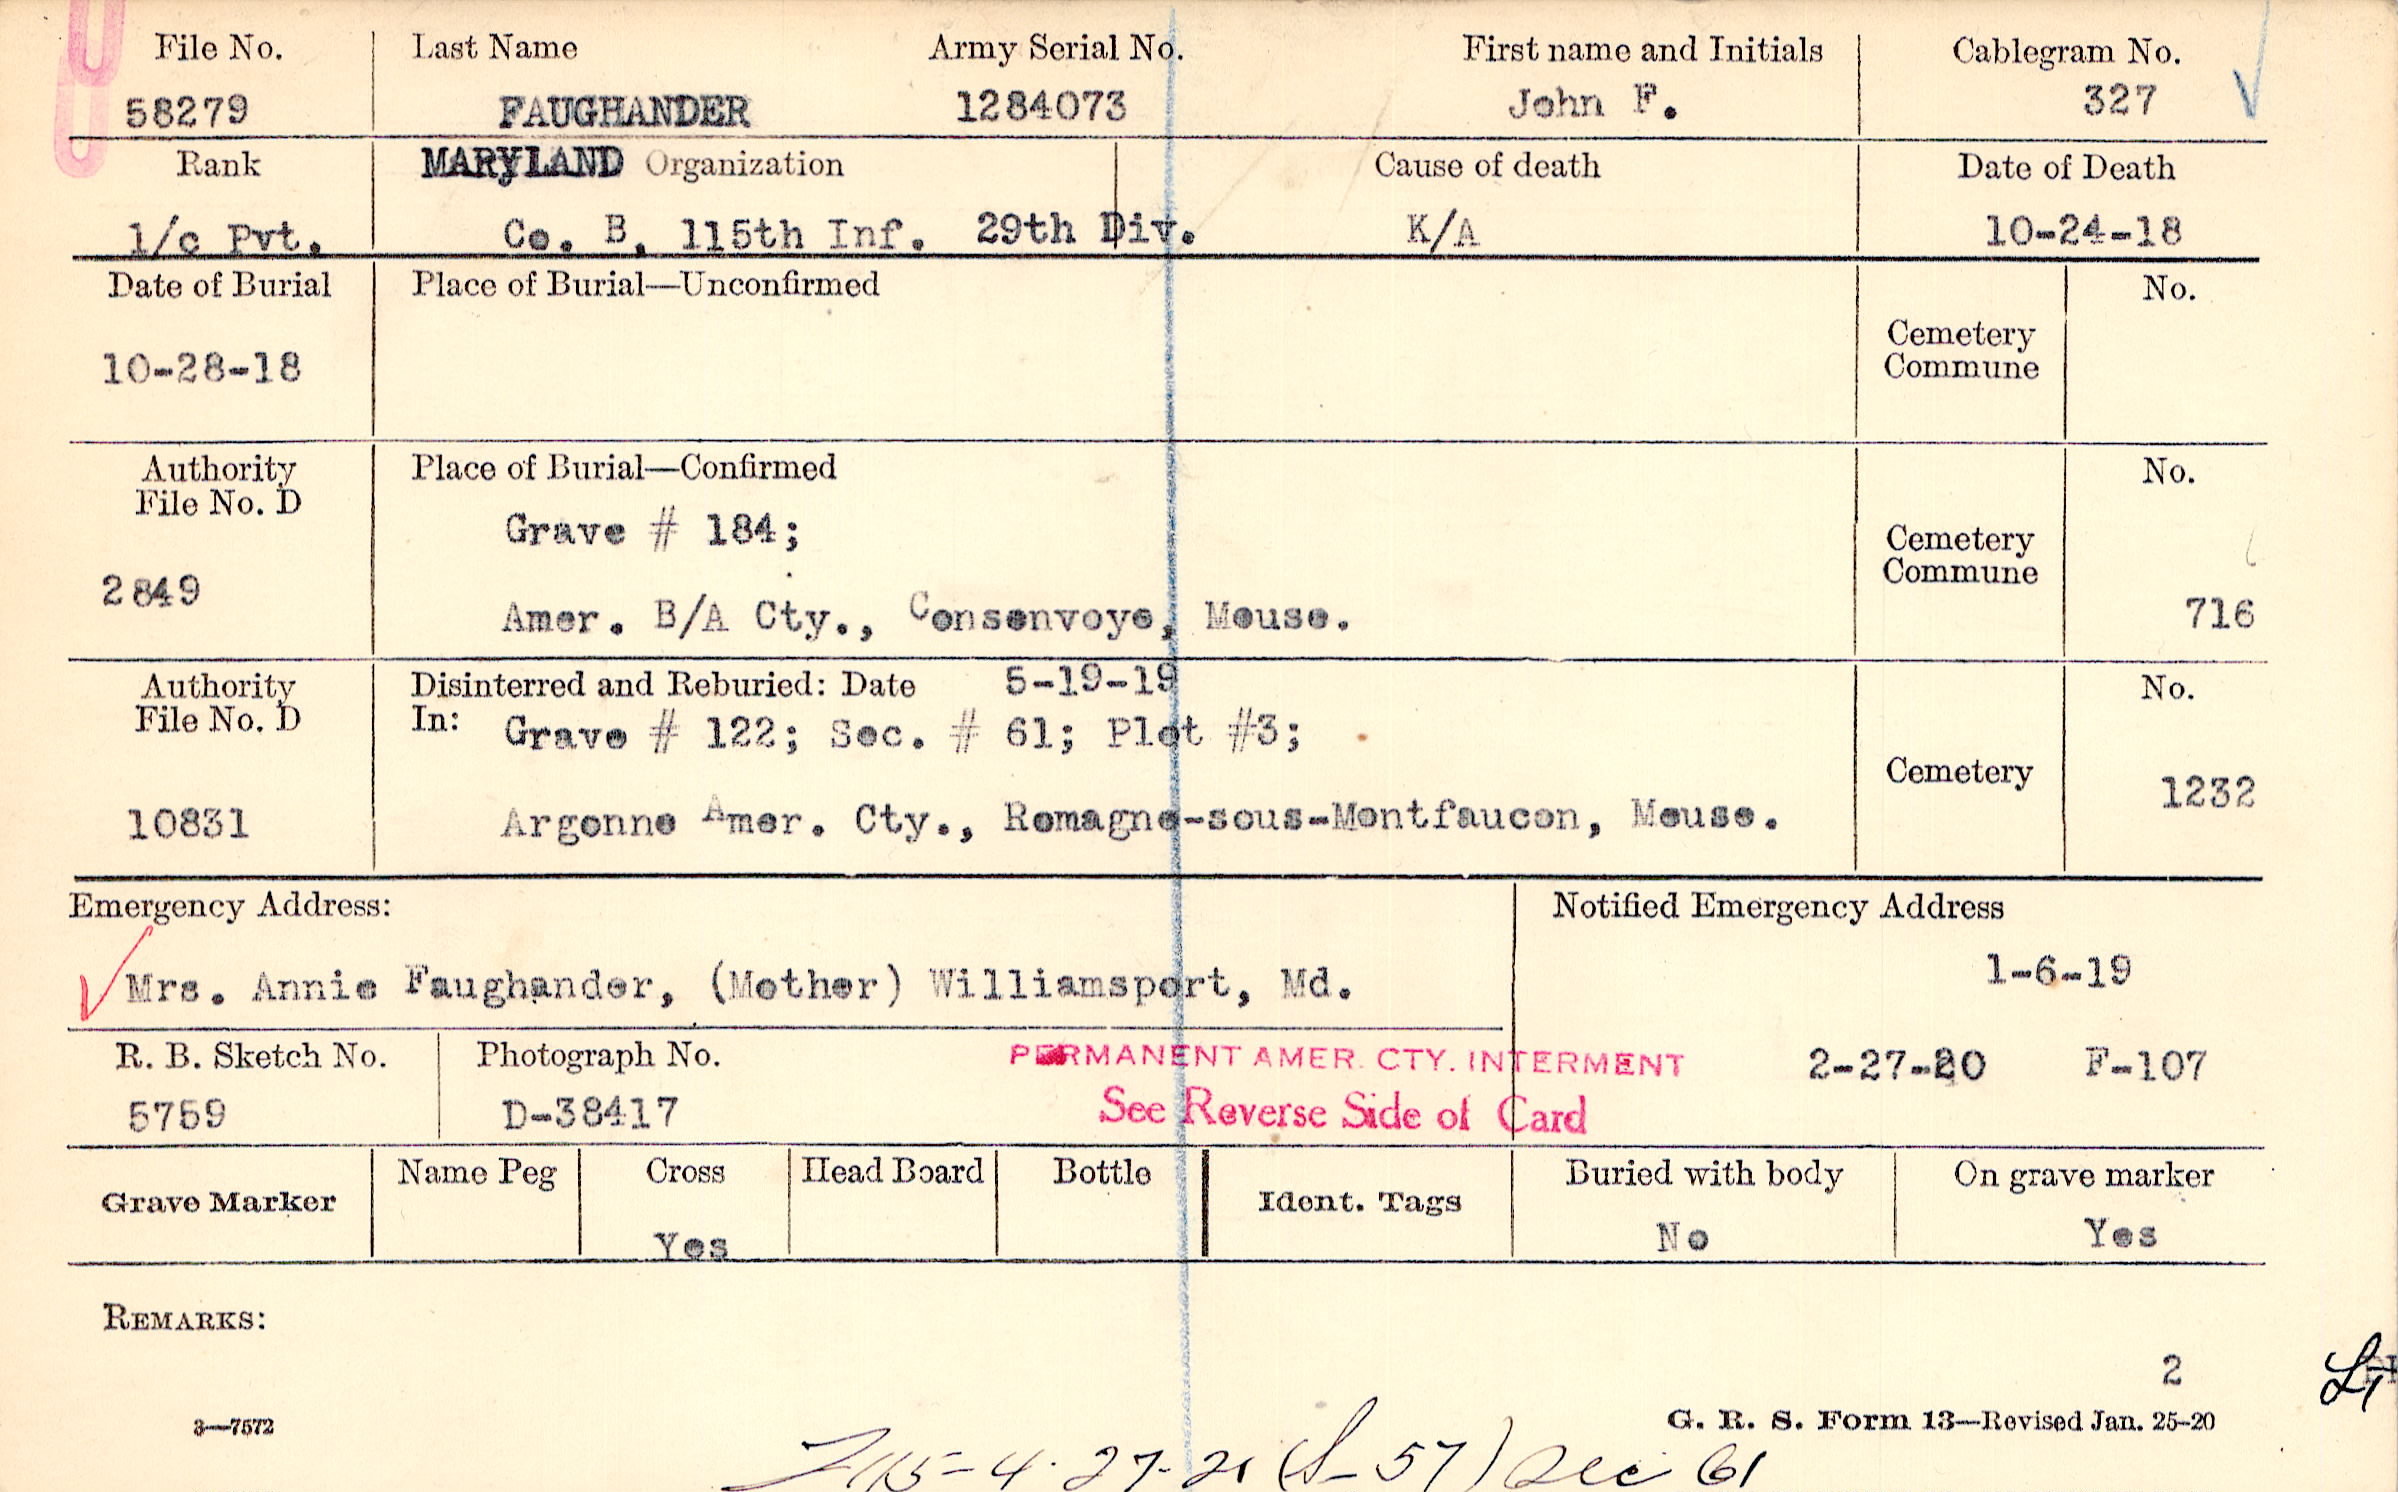 File No. Last Name Army Serial No. First name and Initials Cablegram No.
58279 FAUGHANDER 1284073 John F. 327
Rank MARYLAND Organization Cause of death Date of Death
1/c Pvt. Co. B, 115th Inf. 29th Div. K/A 10-24-18
Date of Burial Place of Burial—Unconfirmed No.
Cemetery
Commune
10-28-18
Authority Place of Burial—Confirmed No.
File No. D
Grave # 184;
Cemetery
Commune
2849
Amer. B/A Cty., Consenvoye, Meuse. 716
Authority Disinterred and Reburied: Date 5-19-19 No.
File No. D In: Grave # 122; Sec. # 61; Plot #3;
Cemetery 1232
10831 Argonne Amer. Cty., Romagne-sous-Montfaucon, Meuse.
Emergency Address: Notified Emergency Address
Mrs. Annie Faughander, (Mother) Williamsport, Md. 1-6-19
R. B. Sketch No. Photograph No. PERMANENT AMER. CTY. INTERMENT 2-27-20 F-107
5759 D-38417 See Reverse Side of Card
Grave Marker Name Peg Cross Head Board Bottle Ident. Tags Buried with body On grave marker
Yes No Yes
REMARKS:
2
3—7572 G. R. S. Form 13—Revised Jan. 25-20
4-27-21 (S-57) Sec 61